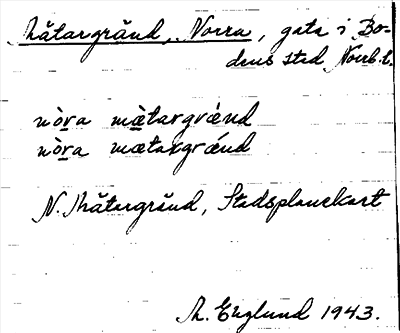 Mätargränd, Norra, gata i Bo-
dens stad Norrb.l.
nòra mæ̀targrǽnd
nòra mætargrǽnd
N. Mätargränd, Stadsplanekart
M. Englund 1943.